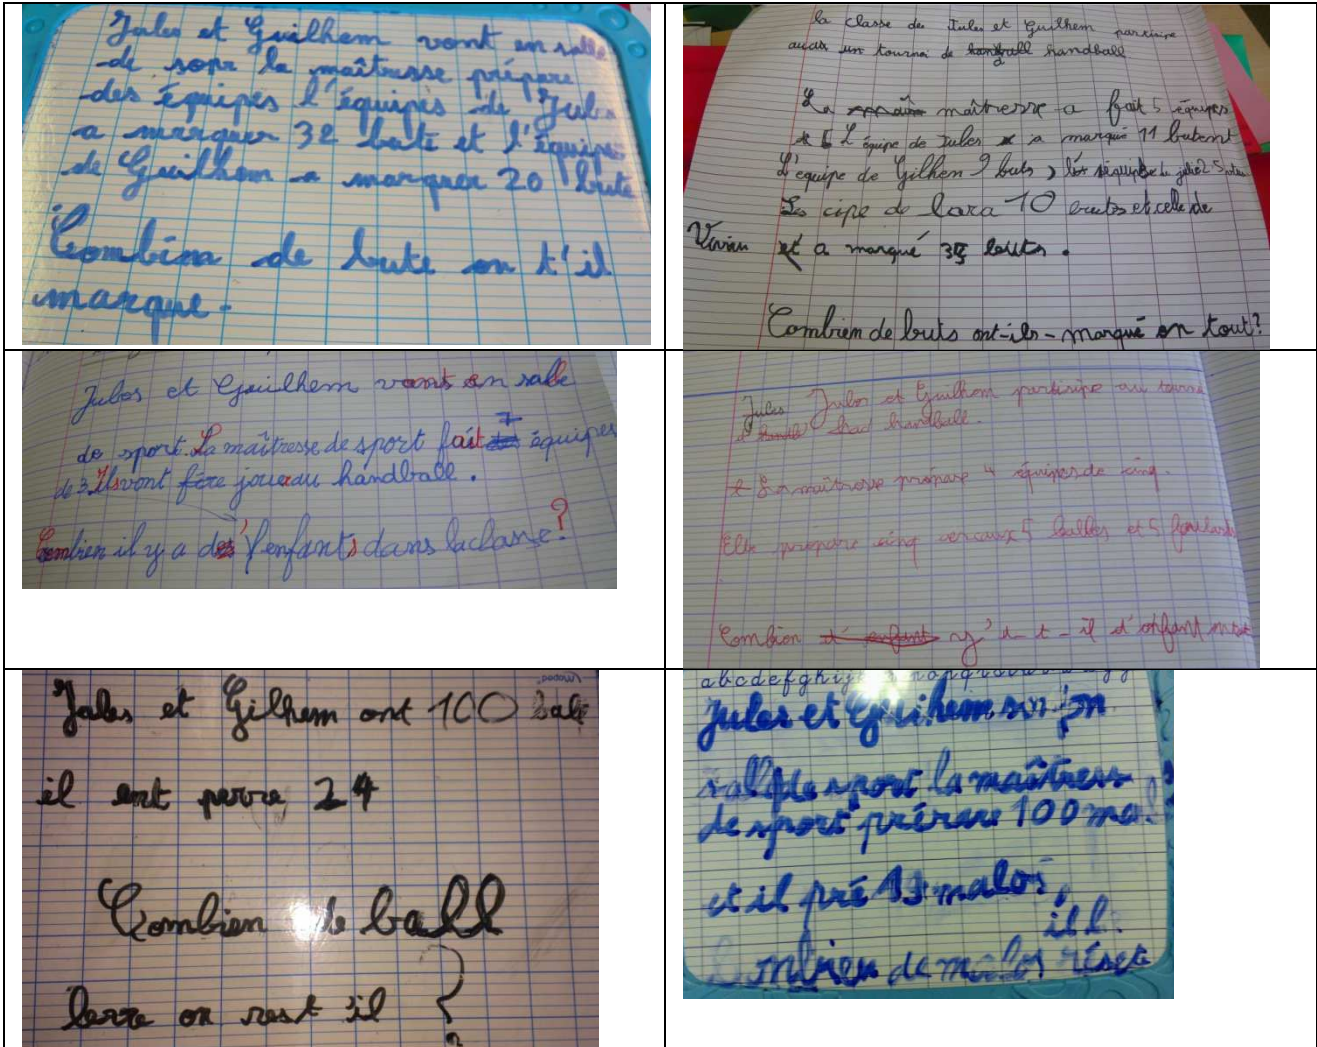 Jules et Guilhem vont en salle
de sopr la maîtresse prépare
des équipes l'équipes de Jules
a marquer 32 bute et l'équipe
de Guilhem a marquer 20 bute
Combina de bute on t'il
marque.
la classe de Jules et Guilhem participe
un tournoi de handball
La maîtresse a fait 5 équipes
L'équipe de Jules a marqué 11 butent
L'equipe de Gilhem 9 buts,
de Lara 10 buts et cele de
Vivian a marqué 35 buts.
Combien de buts ont-ils-marqué en tout?
Jules et Guilhem vont en salle
de sport. La maîtresse de sport fait 7 équipes
de 3. Ils vont fère joueau handball.
Combien il y a d'enfants dans la classe?
Jules Jules et Guilhem participe au
handball.
La maîtresse prépare 4 équipes de cinq.
Elle prépare cinq cerceaux 5 balles et 5 foulards
Combien y'a-t-il d'enfant
Jules et Gilhem ont 100 bale
il ont perre 24
Combien de ball
lerre on rest il
?
abcdefghij
Jules et Guihem son on
salle de sport la maîtress
de sport prérare 100 ma
et il pré 13 malos,
il l
ombien de malos réset